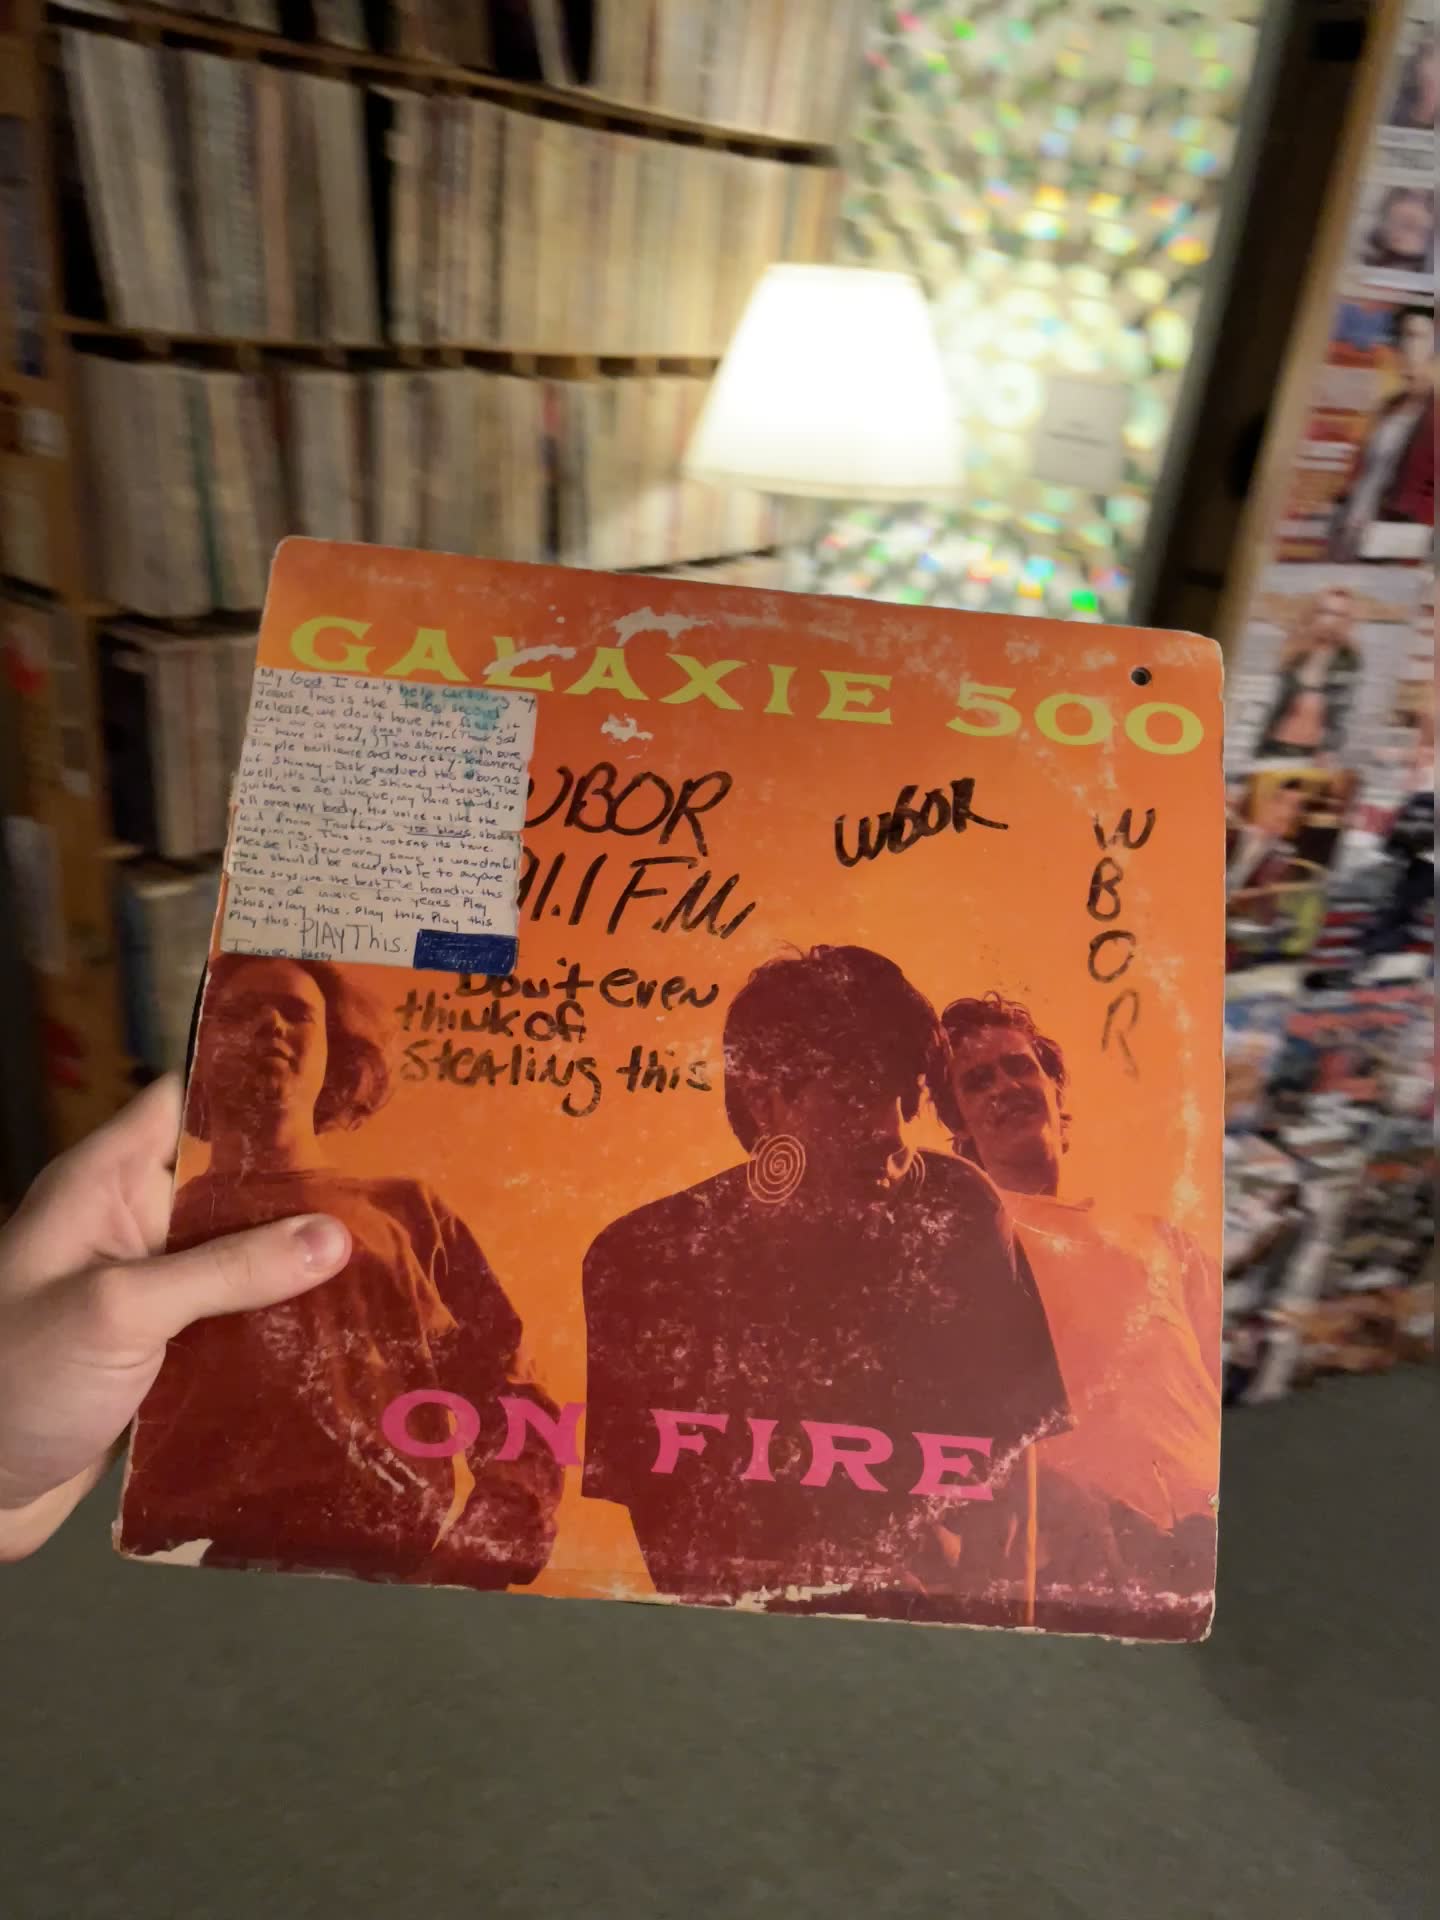 GALAXIE 500
My God, I can't help creaming my
Jeans this is the second
Release, we don't have the first, it
was on a very small label. (Thank god
I have it baby) This shines with pure
simple brilliance and honesty. Kramer,
of Shimmy-Disk produced this album as
well, it's not like shimmy though. The
guitar is so unique, my hair stands up
all over your body. His voice is like the
kid from Truffaut's 400 blows, absolu
inspiring. This is
Please listen every song is wonderful
this should be acceptable to anyone.
These guys are the best I've heard in this
genre of music for years Play
this. Play this. Play this, Play this
Play this. PLAY This.
WBOR
91.1 F.M.
WBOR
W
B
O
R
Don't even
think of
stealing this
ON FIRE